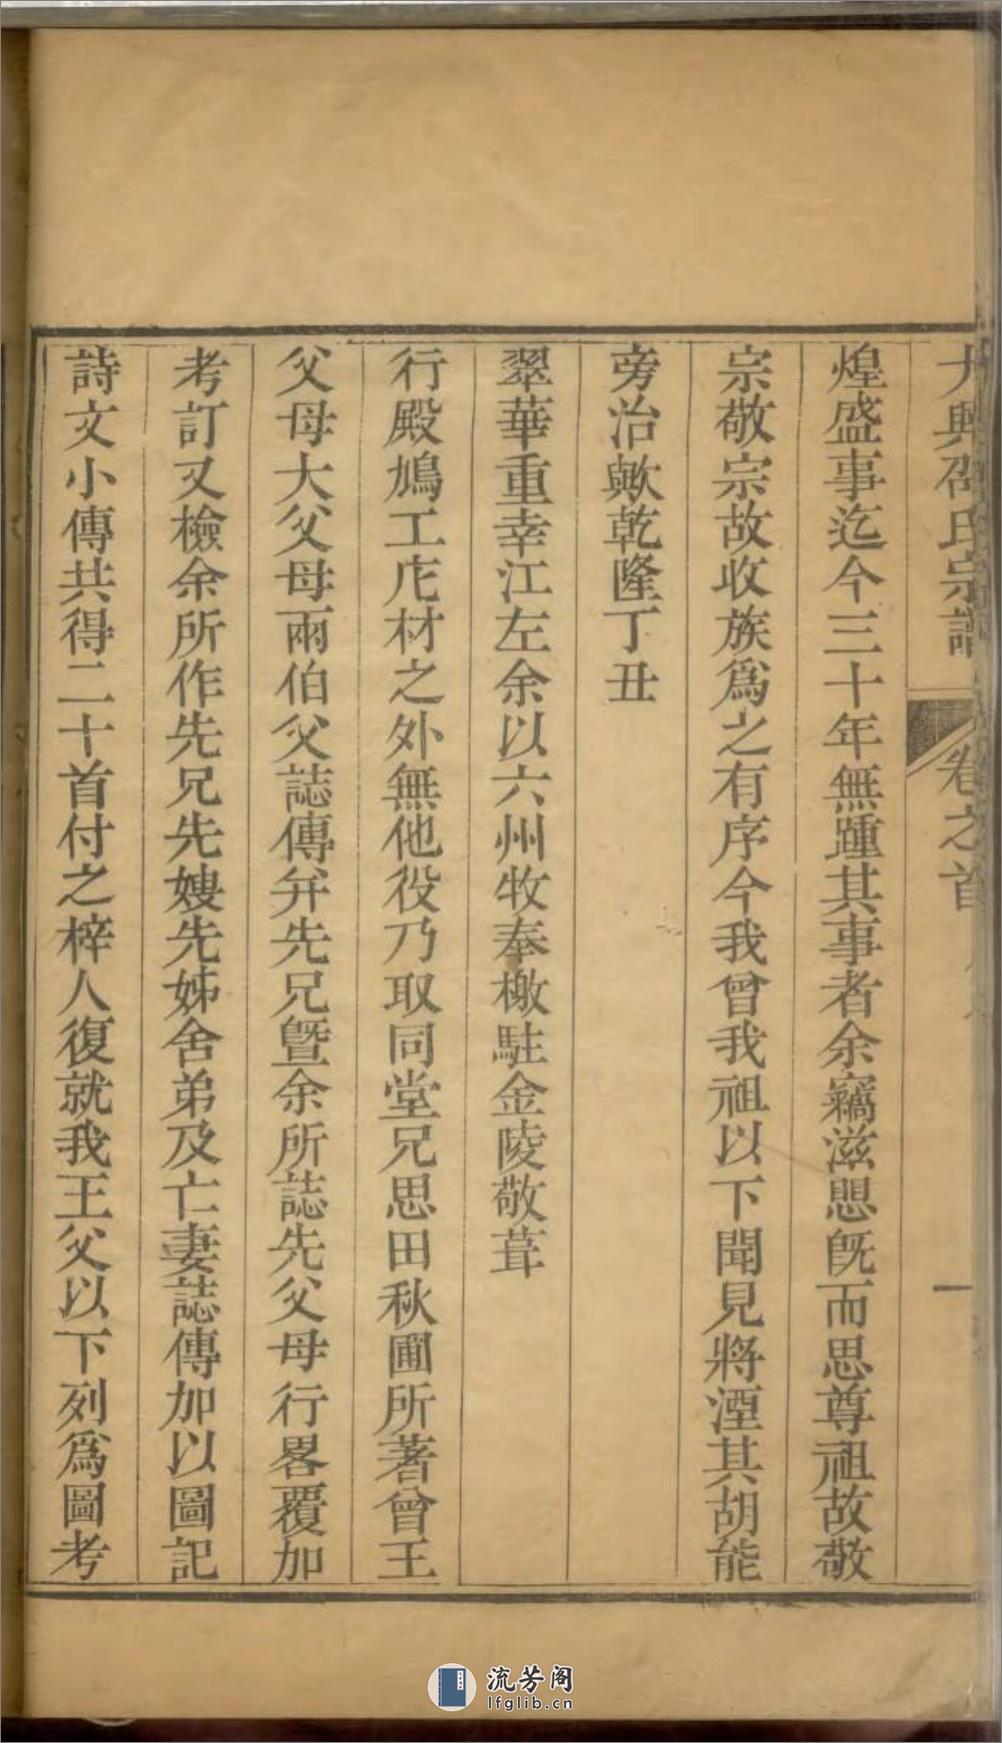 大興邵氏宗譜 卷之首 一
煌盛事迄今三十年無踵其事者余竊滋思旣而思尊祖故敬
宗敬宗故收族爲之有序今我曾我祖以下聞見將湮其胡能
旁治歟乾隆丁丑
翠華重幸江左余以六州牧奉檄駐金陵敬葺
行殿鳩工庀材之外無他役乃取同堂兄思田秋圃所著曾王
父母大父母兩伯父誌傳弁先兄曁余所誌先父母行畧覆加
考訂又檢余所作先兄先嫂先姊舍弟及亡妻誌傳加以圖記
詩文小傳共得二十首付之梓人復就我王父以下列爲圖考
流芳阁
lfglib.cn